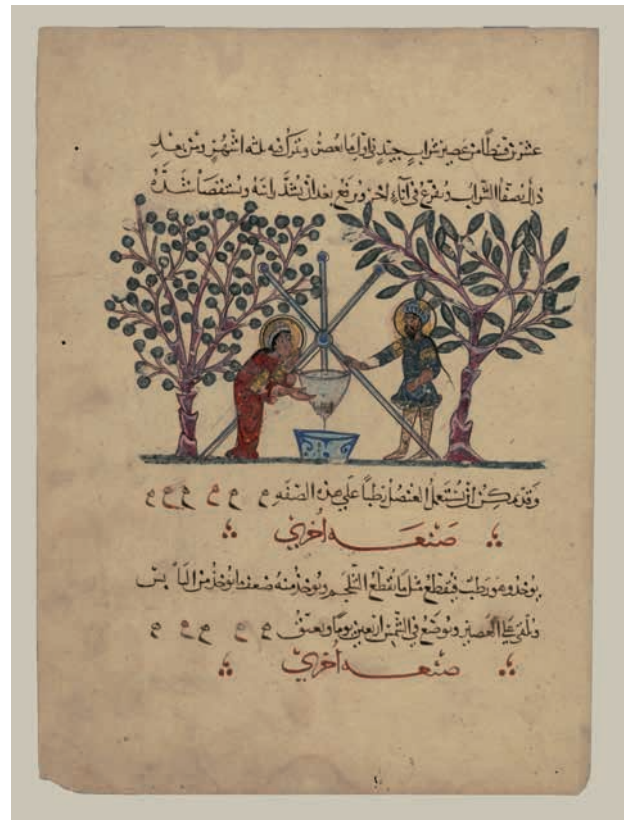 عشرين قسطا من عصير شراب جيد في اول ما يعصر وتركته ثلثه اشهر ومن بعد
ذلك يصفا الشراب ويفرغ في آناء اخر ويرفع بعد ان يشد راسه ويستقصا شده
وقد يمكن ان يستعمل العنصل رطبا على هذه الصفه
صنعه اخرى
يوخذ وهو رطب فيقطع مثل ما يقطع الثلجم ويوخذ منه ضعف ما يوخذ من اليابس
ويلقى على العصير ويوضع في الشمس اربعين يوما ويعتق
صنعه اخرى